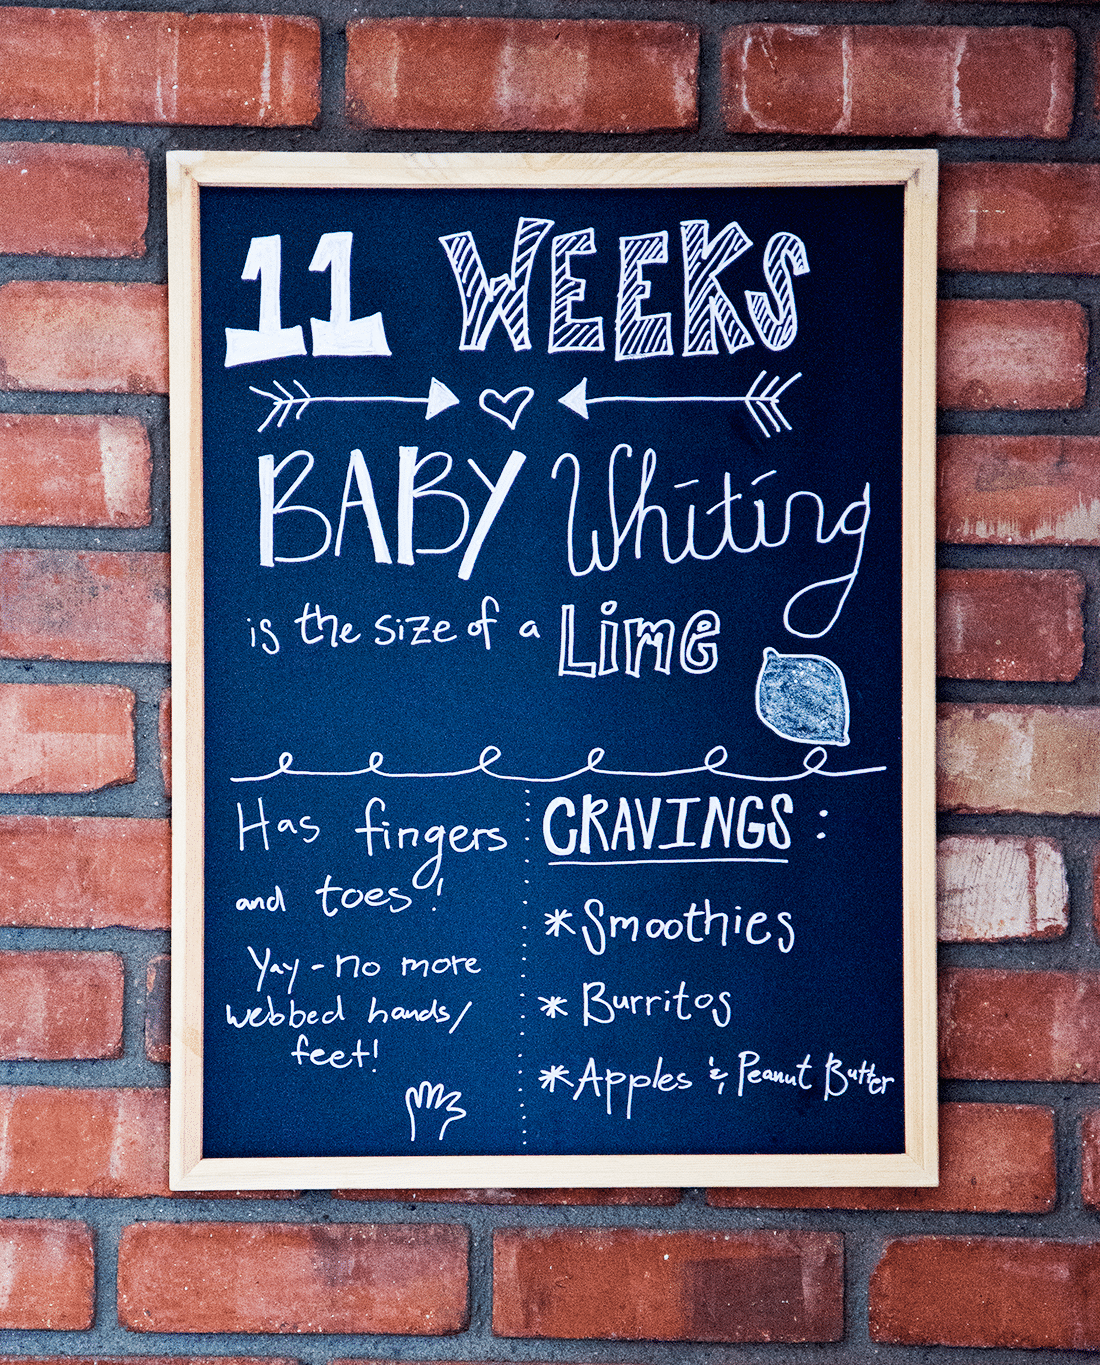 11 WEEKS
BABY Whiting
is the size of a Lime
Has fingers
and toes!
Yay - no more
webbed hands/
feet!
CRAVINGS:
* Smoothies
* Burritos
* Apples & Peanut Butter